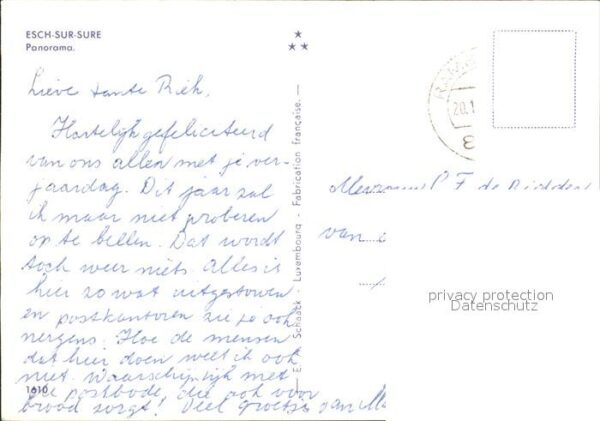 ESCH-SUR-SURE
Panorama.
Lieve tante Riek,
Hartelijk gefeliciteerd
van ons allen met je ver-
jaardag. Dit jaar zal
ik maar niet proberen
op te bellen. Dat wordt
toch weer niets. Alles is
hier zo wat uitgestorven
en postkantoren zie je ook
nergens. Hoe de mensen
dat hier doen weet ik ook
niet. Waarschijnlijk met
de postbode, die ook voor
brood zorgt! Veel groetjes van
1610
Schaack - Luxembourg - Fabrication française.
20.1
Mevrouw P F de Ridder
van
privacy protection
Datenschutz